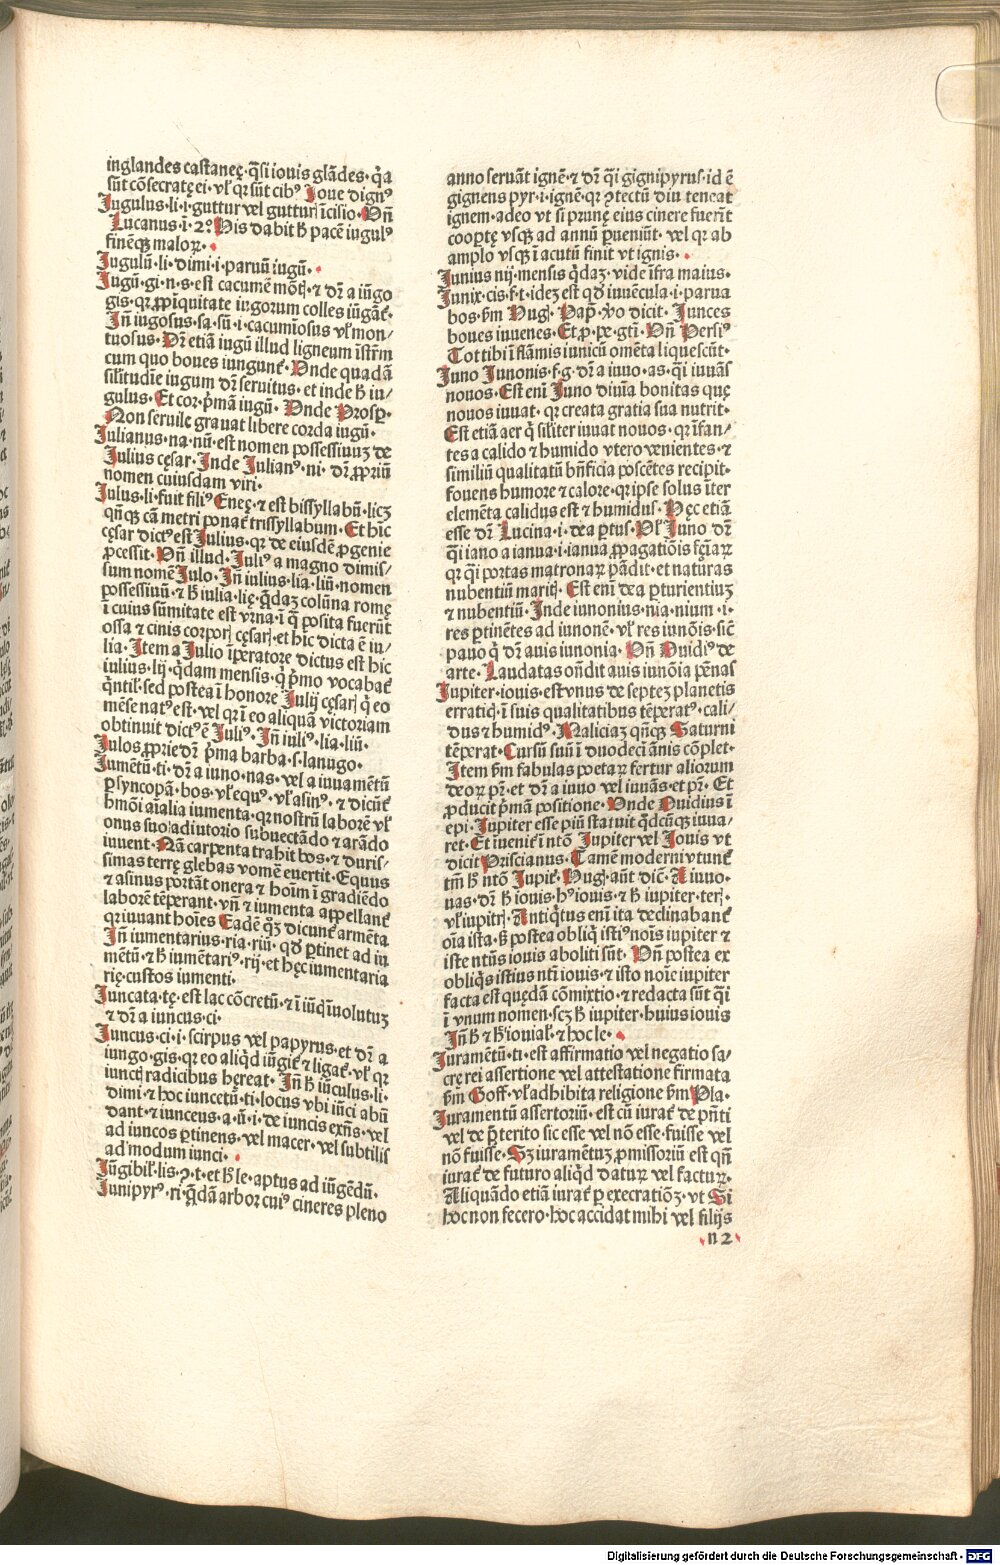 inglandes castaneę·q̄si iouis glādes·q̄a
sūt cōsecratę ei·vľ qꝛ sūt cibꝰ Joue dignꝰ
Jugulus·li·i·guttur vel gutturꝭ īcisio·Vn̄
Lucanus·i·2°·His dabit h̄ pacē iugulꝰ
finēqꝫ maloꝝ·
Jugulū·li·dimi·i·paruū iugū·
Jugū·gi·n·s·est cacumē mōtꝭ·⁊ dr̄ a iūgo
gis·qꝛ ꝓpīquitate iugorum colles iūgāt̄·
Jn̄ iugosus·sa·sū·i·cacumiosus vľ mon/
tuosus·Dr̄ etiā iugū illud ligneum īstr̄m
cum quo boues iungunt̄·Vnde quadā
silitudīe iugum dr̄ seruitus·et inde h̄ iu/
gulus·Et cor·p̄mā iugū·Vnde Prosp̲·
Non seruile grauat libere corda iugū·
Julianus·na·nū·est nomen possessiuuꝫ de
Julius cęsar·Jnde Julianꝰ·ni·dr̄ ꝓpriū
nomen cuiusdam viri·
Julus·li·fuit filiꝰ Eneę·⁊ est bissyllabū·licꝫ
qn̄qꝫ cā metri ponat̄ trissyllabum·Et hīc
cęsar dictꝰ est Julius·qꝛ de eiusdē ꝓgenie
ꝓcessit·Vn̄ illud·Juliꝰ a magno dimis/
sum nomē Julo·Jn̄ iulius·lia·liū·nomen
possessiuū·⁊ h̄ iulia·lię·q̄daꝫ colūna romę
ī cuius sūmitate est vrna·ī q̄ posita fuerūt
ossa ⁊ cinis corporꝭ cęsarꝭ·et hīc dicta ē iu/
lia·Jtem a Julio īperatore dictus est hic
iulius·lij·q̇dam mensis·q̇ p̄mo vocabat̄
q̇ntil̓·sed postea ī honore Julij cęsarꝭ q̇ eo
mēse natꝰ est·vel qꝛ ī eo aliquā victoriam
obtinuit dictꝰ ē Juliꝰ·Jn̄ iuliꝰ·lia·liū·
Julos ꝓprie dr̄ p̄ma barba·s·lanugo·
Jumētū·ti·dr̄ a iuuo·nas·vel a iuuamētū
p̲ syncopā·bos·vľ equꝰ·vľ asinꝰ·⁊ dicūt̄
h̄mōi aīalia iumenta·qꝛ nostrū laborē vľ
onus suo adiutorio subuectādo ⁊ arādo
iuuent·Nā carpenta trahit bos·⁊ duris/
simas terrę glebas vomē euertit·Equus
⁊ asinus portāt onera ⁊ hoīm ī gradiēdo
laborē tēperant·vn̄ ⁊ iumenta appellant̄
qꝛ iuuant hoīes Eadē qꝫ dicunt̄ armēta
Jn̄ iumentarius·ria·riū·qď p̲tinet ad iu
mētū·⁊ h̄ iumētariꝰ·rij·et hęc iumentaria
rię·custos iumenti·
Juncata·tę·est lac cōcretū·⁊ ī iūcꝭ īuolutuꝫ
⁊ dr̄ a iuncus·ci·
Juncus·ci·i·scirpus vel papyrus·et dr̄ a
iungo·gis·qꝛ eo aliqď iūgit̄ ⁊ ligat̄·vľ qꝛ
iunctꝭ radicibus hęreat·Jn̄ h̄ iūculus·li·
dimi·⁊ hoc iuncetū·ti·locus vbi iūci abū
dant·⁊ iunceus·a·ū·i·de iuncis exn̄s·vel
ad iuncos p̲tinens·vel macer·vel subtilis
ad modum iunci·
Jūgibil̓·lis·ꝯ·t·et h̄ le·aptus ad iūgēdū·
Junipyrꝰ·ri·q̄dā arbor cuiꝰ cineres pleno
anno seruāt ignē·⁊ dr̄ q̄si gignipyrus·id ē
gignens pyr·i·ignē·qꝛ ꝯtectū diu teneat
ignem·adeo vt si prunę eius cinere fuerīt
cooptę vsqꝫ ad annū p̄ueniūt·vel qꝛ ab
amplo vsqꝫ ī acutū finit vt ignis·
Junius nij·mensis q̇daꝫ·vide īfra maius·
Junix·cis·f·t·ideꝫ est qď iuuēcula·i·parua
bos·ẜm Hug̓·Pap̄·ꝟo dicit·Junces
boues iuuenes·Et ꝓ·pe·gtī·Vn̄ Persiꝰ
Tot tibi ī flāmis iunicū omēta liquescūt·
Juno Junonis·f·g·dr̄ a iuuo·as·q̄si iuuās
nouos·Est enī Juno diuīa bonitas quę
nouos iuuat·qꝛ creata gratia sua nutrit·
Est etiā aer q̇ siliter iuuat nouos·qꝛ īfan/
tes a calido ⁊ humido vtero venientes·⁊
similiū qualitatū bn̄ficia poscētes recipit·
fouens humore ⁊ calore·qꝛ ipse solus īter
elemēta calidus est ⁊ humidus·Hęc etiā
esse dr̄ Lucina·i·dea p̲tus·Vľ Juno dr̄
q̄si iano a ianua·i·ianua ꝓpagatiōis fcīaꝝ
qꝛ q̄si portas matronaꝝ pādit·et naturas
nubentiū maritꝭ·Est enī dea p̲turientiuꝫ
⁊ nubentiū·Jnde iunonius·nia·nium·i·
res p̲tinētes ad iunonē·vľ res iunōis·sic̄
pauo q̇ dr̄ auis iunonia·Vn̄ Ouidiꝰ de
arte·Laudatas on̄dit auis iunōia pēnas
Jupiter·iouis·est vnus de septeꝫ planetis
erraticꝭ·ī suis qualitatibus tēperatꝰ·cali/
dus ⁊ humidꝰ·Maliciaꝫ qn̄qꝫ Saturni
tēperat·Cursū suū ī duodecī ānis cōplet·
Jtem ẜm fabulas poetaꝝ fertur aliorum
deoꝝ pr̄·et dr̄ a iuuo vel iuuās·et pr̄·Et
ꝓducit p̄mā positione·Vnde Ouidius ī
epi·Jupiter esse piū statuit qďcūqꝫ iuua/
ret·Et īuenit̄ ī ntō Jupiter vel Jouis vt
dicit Priscianus·Tamē moderni vtunt̄
tm̄ h̄ ntō Jupit̄·Hug̓·aūt dic̄·A iuuo·
uas·dr̄ h̄ iouis·hꝰ iouis·⁊ h̄ iupiter·terꝭ·
vľ iupitrꝭ·Antiq̇tus enī ita declinabant̄
oīa ista·ẜ postea obliq̇ istiꝰ noīs iupiter ⁊
iste ntūs iouis aboliti sūt·Vn̄ postea ex
obliq̇s istius ntī iouis·⁊ isto noīe iupiter
facta est quędā cōmixtio·⁊ redacta sūt q̄si
ī vnum nomen·scꝫ h̄ iupiter·huius iouis
Jn̄ h̄ ⁊ h̄ iouial̓·⁊ hoc le·
Juramētū·ti·est affirmatio vel negatio sa/
cre rei assertione vel attestatione firmata
ẜm Goff·vľ adhibita religione ẜm Pla·
Juramentū assertoriū·est cū iurat̄ de pn̄ti
vel de p̄terito sic esse vel nō esse·fuisse vel
nō fuisse·Sꝫ iuramētuꝫ ꝓmissoriū est qn̄
iurat̄ de futuro aliqď datuꝝ vel factuꝝ·
Aliquādo etiā iurat̄ p̲ execratiōꝫ·vt Si
hoc non fecero·hoc accidat mihi vel filijs
n 2
Digitalisierung gefördert durch die Deutsche Forschungsgemeinschaft - DFG